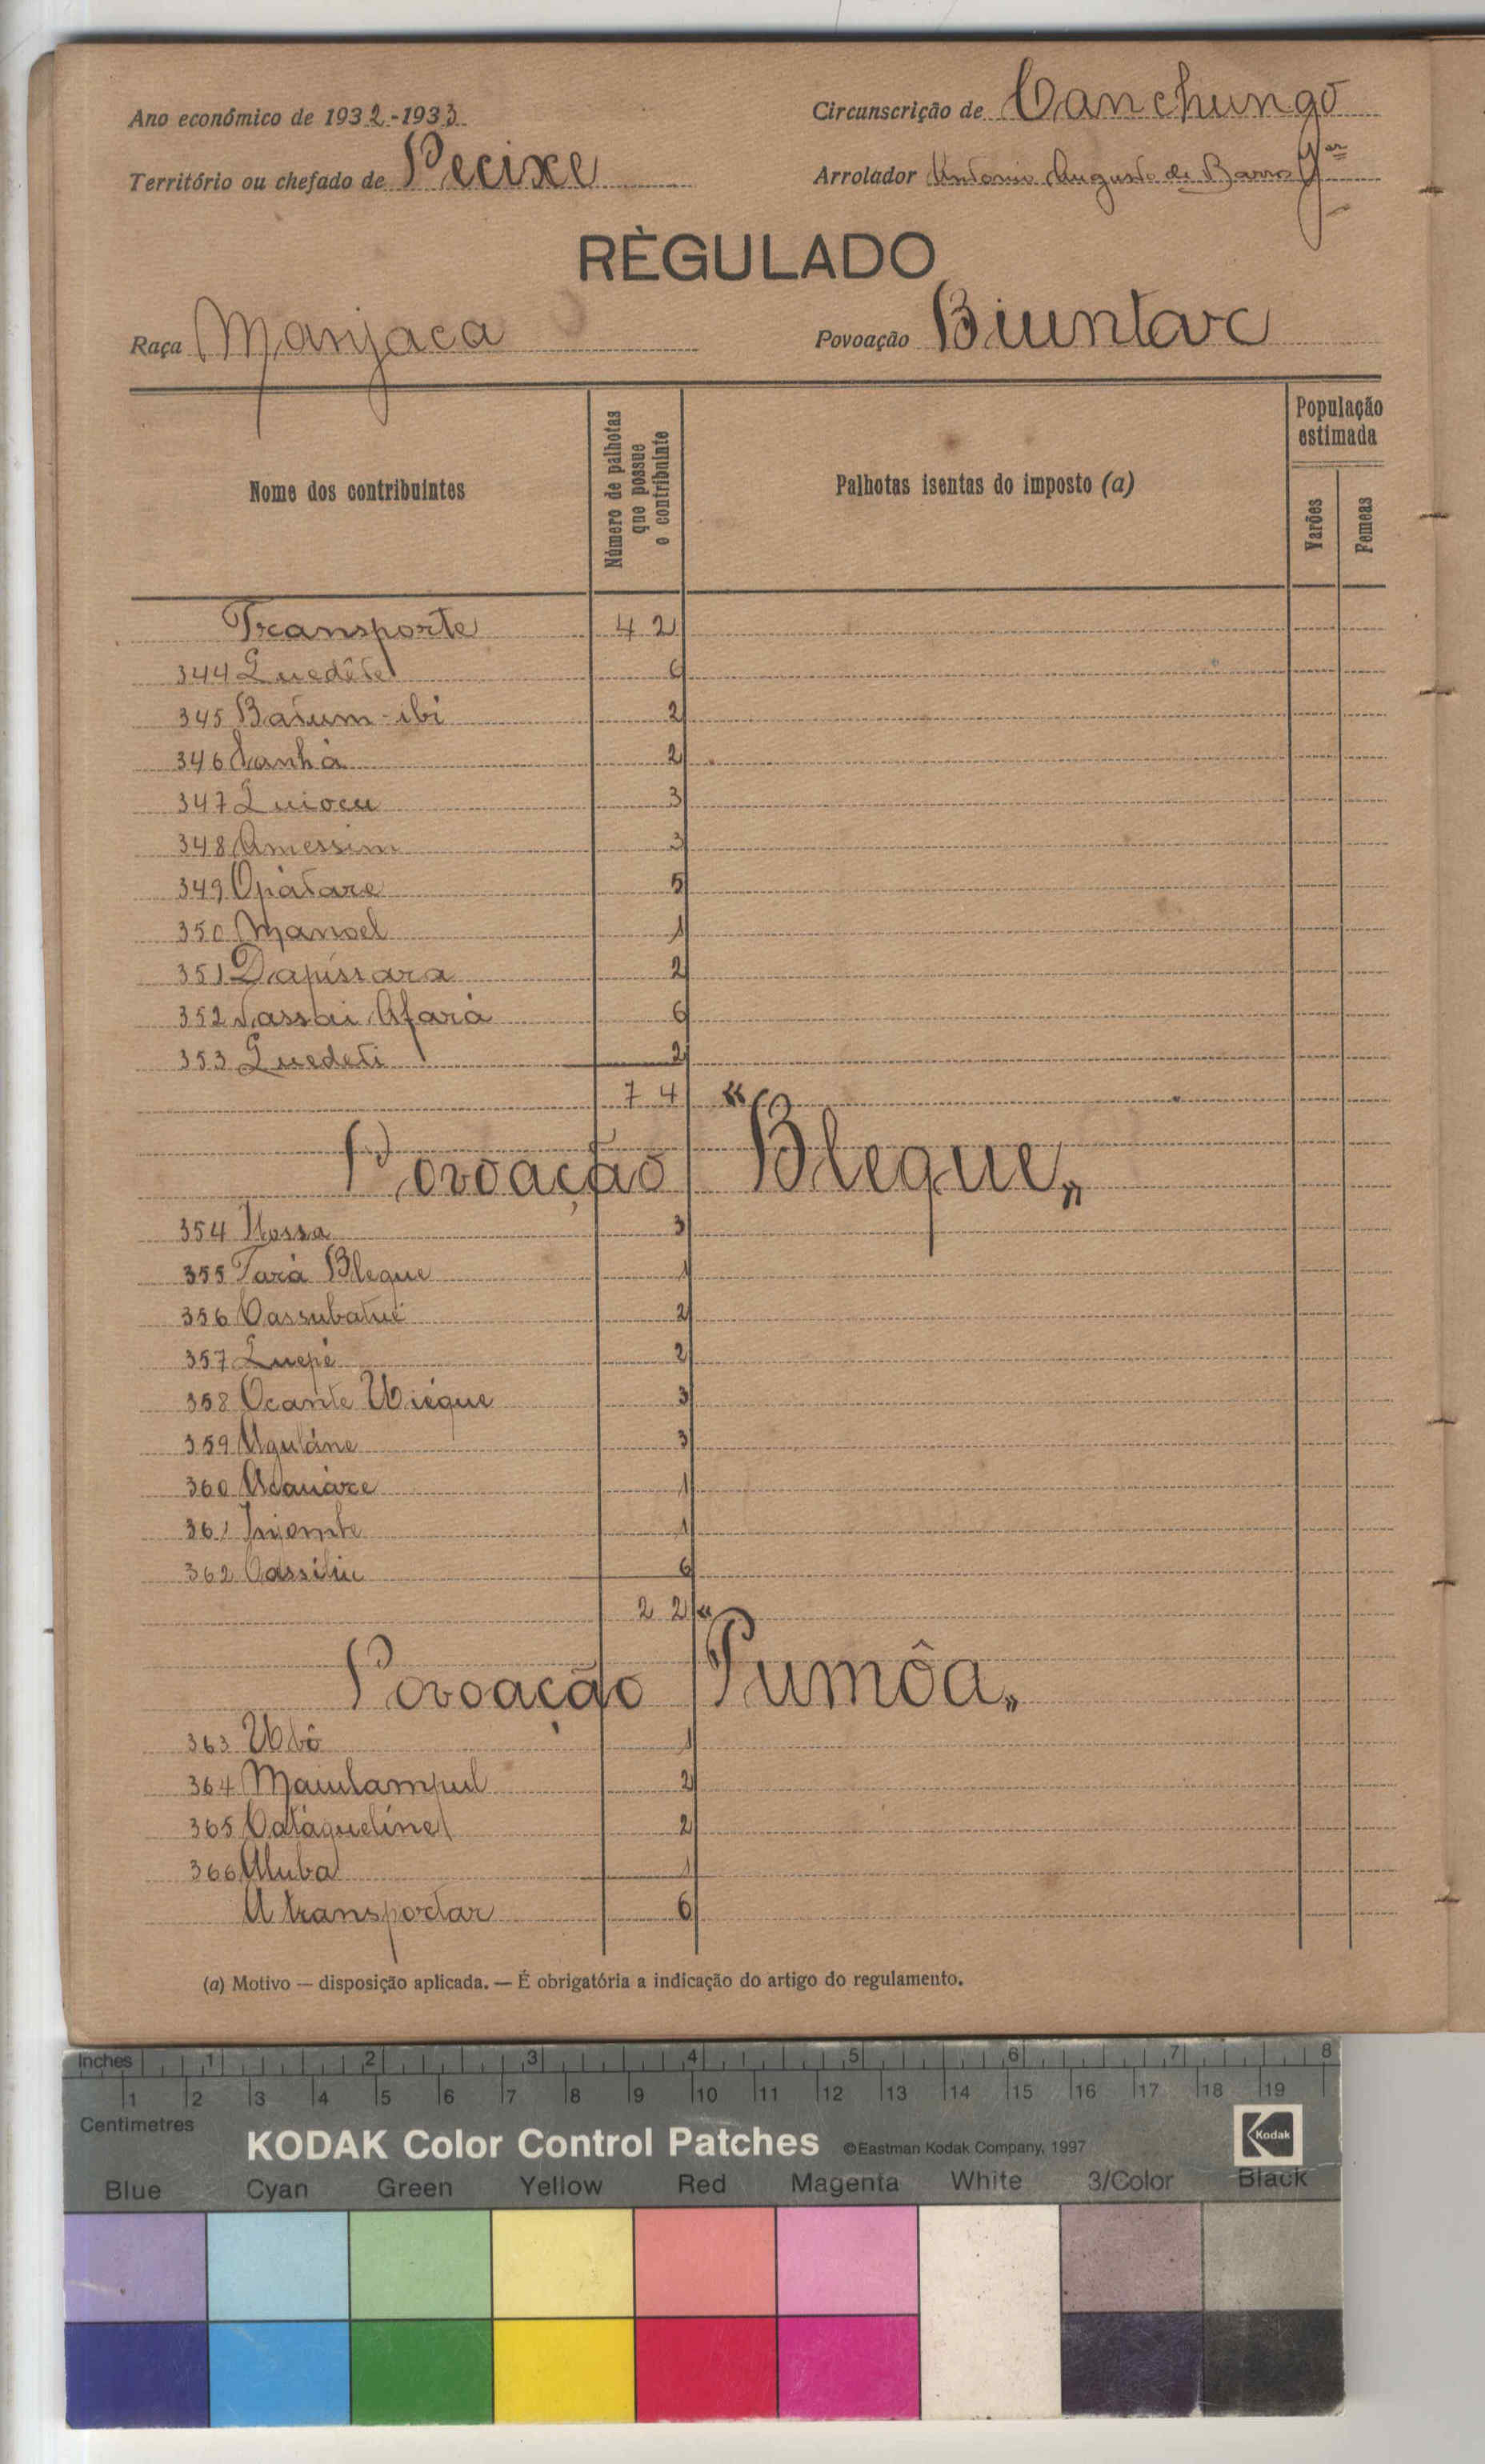 Ano económico de 1932-1933
Circunscrição de Canchungo
Território ou chefado de Pecixe
Arrolador Antonio Augusto de Barros Jor
RÈGULADO
Raça Manjaca
Povoação Biuntar
Nome dos contribuintes
Número de palhotas que possue o contribuinte
Palhotas isentas do imposto (a)
População estimada
Varões
Femeas
Transporte 42
344 Quedête 6
345 Batum-ibi 2
346 Sanhá 2
347 Quiocu 3
348 Amessim 3
349 Opátare 5
350 Manoel 1
351 Dapissara 2
352 Sassai Afará 6
353 Quedeti 2
74
Povoação «Bleque»
354 Nossa 3
355 Tará Bleque 1
356 Cassubatué 2
357 Quepé 2
358 Ocante Uiéque 3
359 Uguláne 3
360 1
361 Injombe 1
362 Cassiliu 6
22
Povoação «Pumôa»
363 Ubô 1
364 Maiulampul 2
365 Catáqueline 2
366 Aluba 1
A transportar 6
(a) Motivo — disposição aplicada. — É obrigatória a indicação do artigo do regulamento.
Inches 1 2 3 4 5 6 7 8
1 2 3 4 5 6 7 8 9 10 11 12 13 14 15 16 17 18 19
Centimetres
KODAK Color Control Patches ©Eastman Kodak Company, 1997 Kodak
Blue Cyan Green Yellow Red Magenta White 3/Color Black